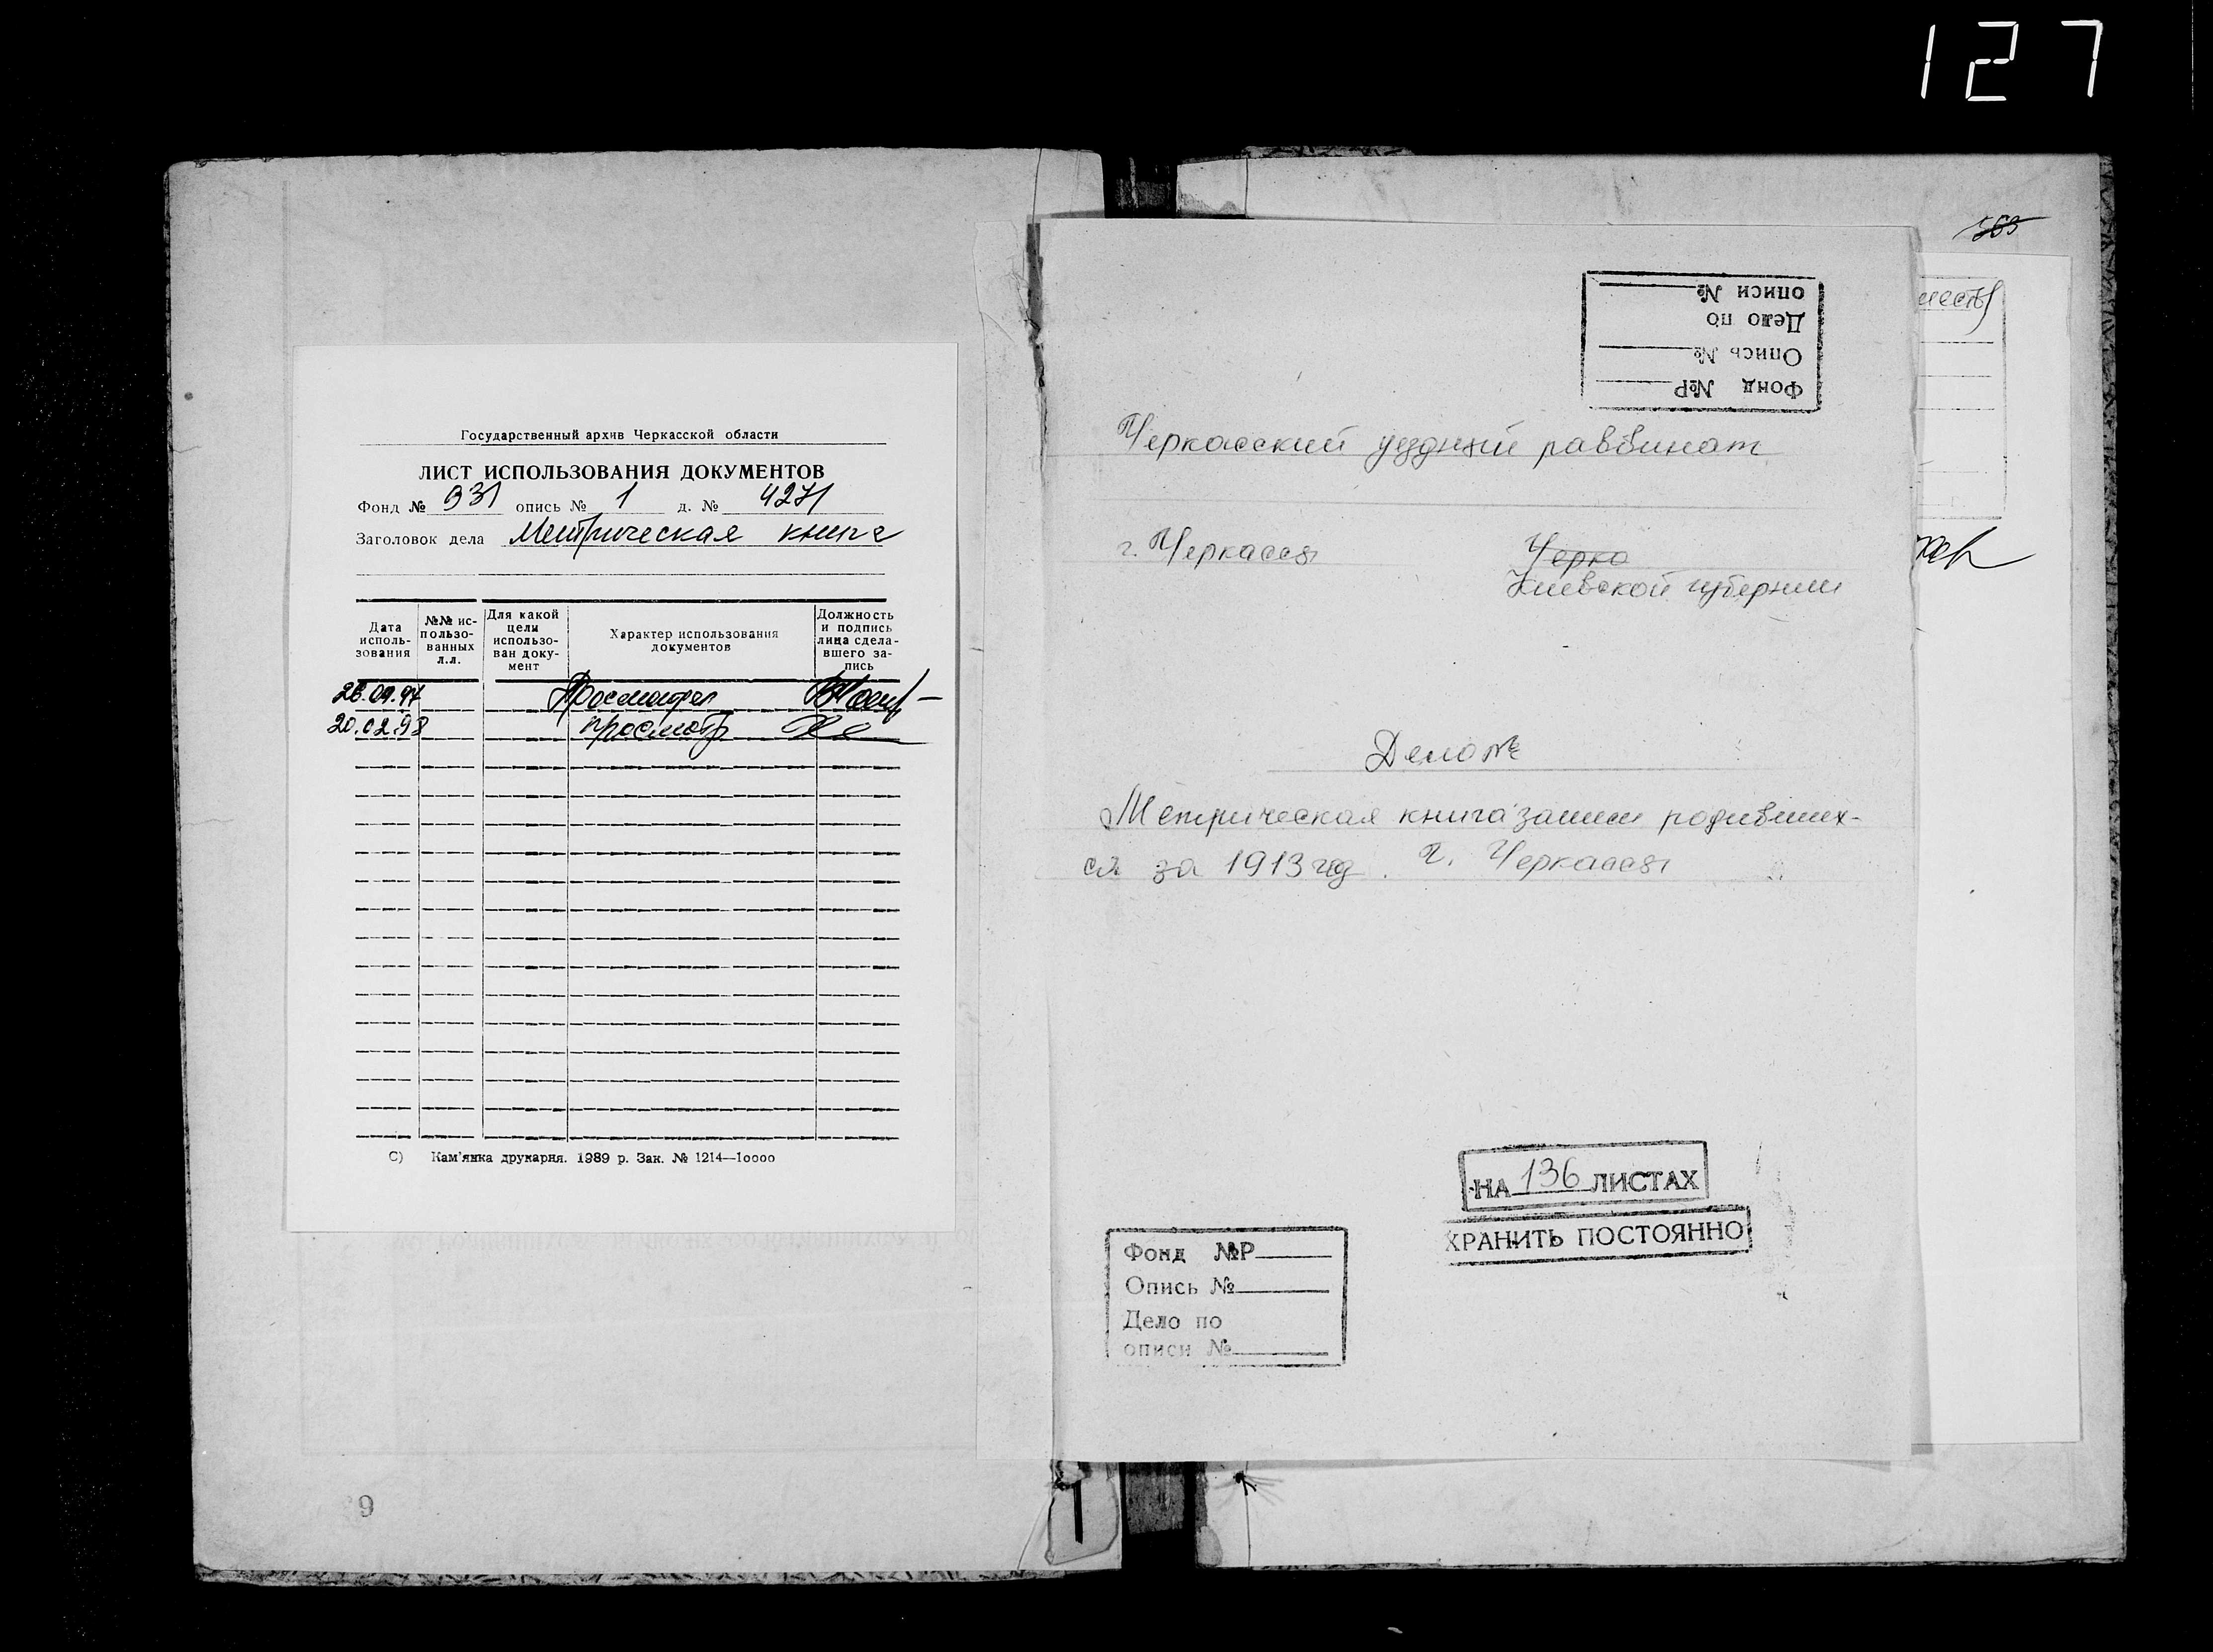 127
Государственный архив Черкасской области
ЛИСТ ИСПОЛЬЗОВАНИЯ ДОКУМЕНТОВ
Фонд № 931 опись № 1 д. № 4271
Заголовок дела Метрическая книга
Дата исполь- зования
№№ ис- пользо- ванных л.л.
Для какой цели использо- ван доку- мент
Характер использования документов
Должность и подпись лица сдела- вшего за- пись
26.09.97 Просмотрел
20.02.98 просмотр
С) Кам'янка друкарня. 1989 р. Зак. № 1214—10000
9
563
Фонд №Р
Опись №
Дело по
описи №
Черкасский уездный раввинат
г. Черкассы
Черка
Киевской губернии
Дело №
Метрическая книга записи родивших-
ся за 1913 год. г. Черкассы
НА 136 ЛИСТАХ
ХРАНИТЬ ПОСТОЯННО
Фонд №Р
Опись №
Дело по
описи №